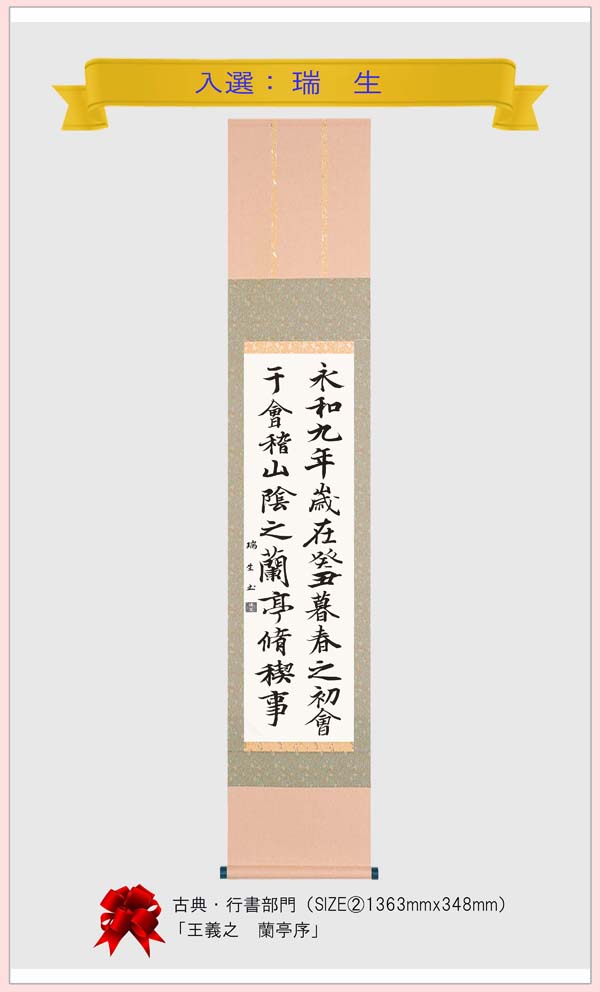 入選：瑞　生
永和九年歳在癸丑暮春之初會
于會稽山陰之蘭亭脩稧事
瑞生書
古典・行書部門（SIZE②1363mmx348mm）
「王義之　蘭亭序」